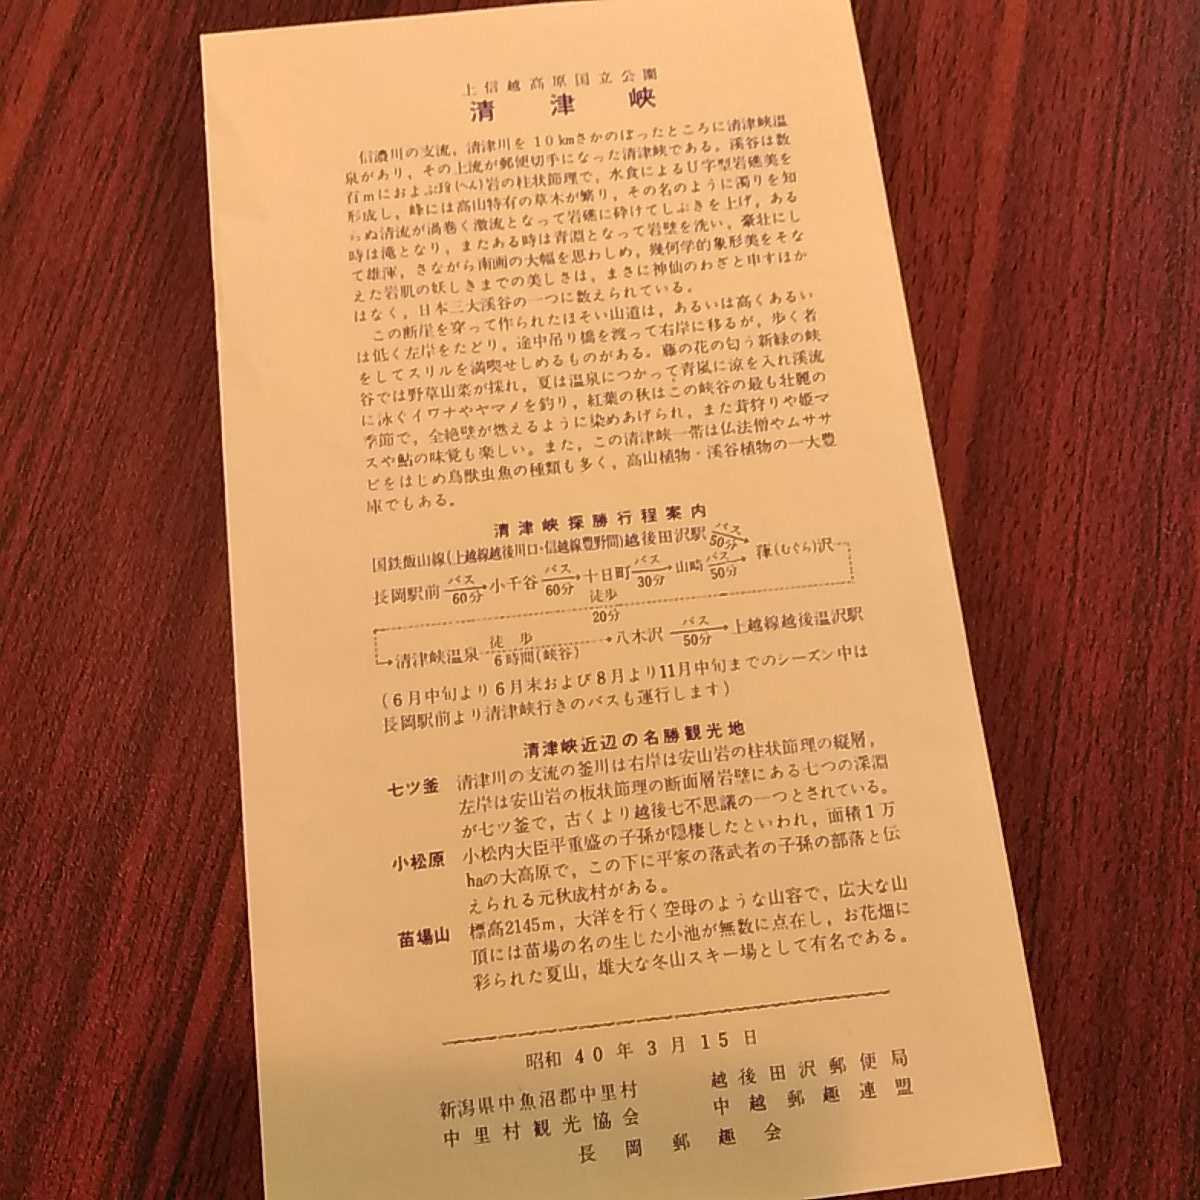 上信越高原国立公園
清津峡
信濃川の支流，清津川を10kmさかのぼったところに清津峡温
泉があり，その上流が郵便切手になった清津峡である。渓谷は数
百mにおよぶ玢(へん)岩の柱状節理で，水食によるU字型岩礁美を
形成し，峰には高山特有の草木が繁り，その名のように濁りを知
らぬ清流が渦巻く激流となって岩礁に砕けてしぶきを上げ，ある
時は滝となり，またある時は青淵となって岩壁を洗い，豪壮にし
て雄渾，さながら南画の大幅を思わしめ，幾何学的象形美をそな
えた岩肌の妖しきまでの美しさは，まさに神仙のわざと申すほか
はなく，日本三大渓谷の一つに数えられている。
この断崖を穿って作られたほそい山道は，あるいは高くあるい
は低く左岸をたどり，途中吊り橋を渡って右岸に移るが，歩く者
をしてスリルを満喫せしめるものがある。藤の花の匂う新緑の峡
谷では野草山菜が採れ，夏は温泉につかって青嵐に涼を入れ渓流
に泳ぐイワナやヤマメを釣り，紅葉の秋はこの峡谷の最も壮麗の
季節で，全絶壁が燃えるように染めあげられ，また茸狩りや姫マ
スや鮎の味覚も楽しい。また，この清津峡一帯は仏法僧やムササ
ビをはじめ鳥獣虫魚の種類も多く，高山植物・渓谷植物の一大豊
庫でもある。
清津峡探勝行程案内
国鉄飯山線(上越線越後川口・信越線豊野間)越後田沢駅 バス 50分
長岡駅前 バス 60分 小千谷 バス 60分 十日町 バス 30分 山崎 バス 50分 葎(むぐら)沢
徒歩 20分
清津峡温泉 徒歩 6時間(峡谷) 八木沢 バス 50分 上越線越後湯沢駅
(6月中旬より6月末および8月より11月中旬までのシーズン中は
長岡駅前より清津峡行きのバスも運行します)
清津峡近辺の名勝観光地
七ツ釜 清津川の支流の釜川は右岸は安山岩の柱状節理の縦層，
左岸は安山岩の板状節理の断面層岩壁にある七つの深淵
が七ツ釜で，古くより越後七不思議の一つとされている。
小松原 小松内大臣平重盛の子孫が隠棲したといわれ，面積1万
haの大高原で，この下に平家の落武者の子孫の部落と伝
えられる元秋成村がある。
苗場山 標高2145m，大洋を行く空母のような山容で，広大な山
頂には苗場の名の生した小池が無数に点在し，お花畑に
彩られた夏山，雄大な冬山スキー場として有名である。
昭和40年3月15日
新潟県中魚沼郡中里村 越後田沢郵便局
中里村観光協会 中越郵趣連盟
長岡郵趣会